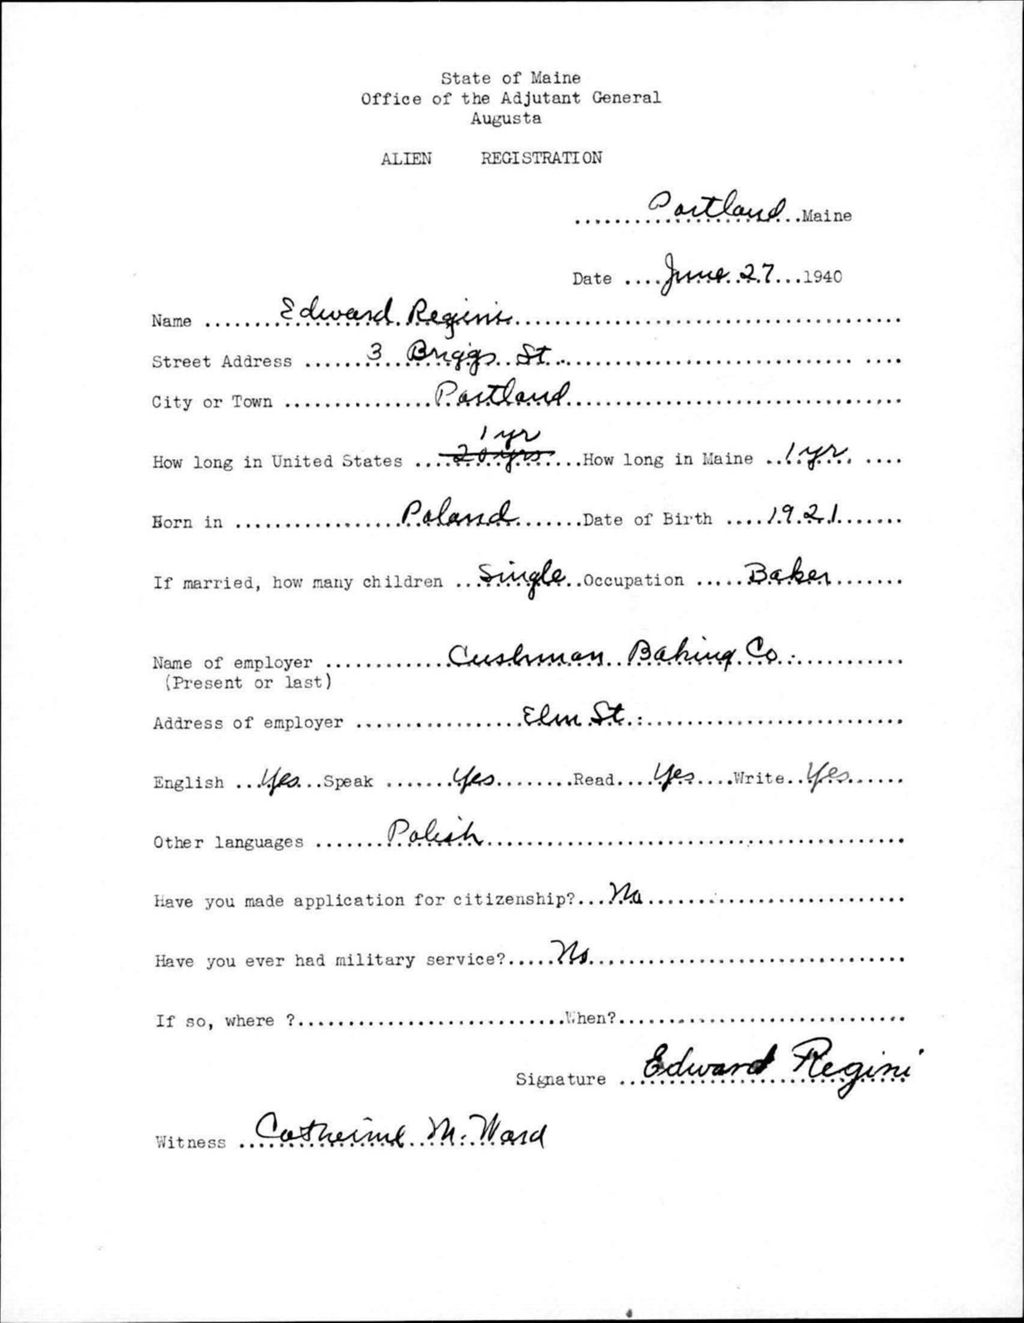 State of Maine
Office of the Adjutant General
Augusta
ALIEN REGISTRATION
Portland Maine
Date June 27 1940
Name Edward Regini
Street Address 3 Briggs St.
City or Town Portland
1 yr
How long in United States 20 yrs How long in Maine 1 yr.
Born in Poland Date of Birth 1921
If married, how many children Single Occupation Baker
Name of employer Cushman Baking Co.
(Present or last)
Address of employer Elm St.
English Yes Speak Yes Read Yes Write Yes
Other languages Polish
Have you made application for citizenship? No
Have you ever had military service? No
If so, where ? When?
Signature Edward Regini
Witness Catherine M. Ward